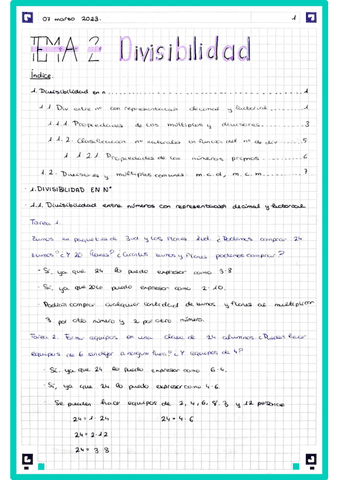 07 marzo 2023.
1
TEMA 2 Divisibilidad
Índice
1. Divisibilidad en n ... 1
1.1 Div entre nº con representación decimal y factorial ... 1
1.1.1 Propiedades de los múltiplos y divisores ... 3
1.1.2. Clasificación nº naturales en función del nº de div ... 5
1.1.2.1 Propiedades de los números primos ... 6
1.2. Divisores y múltiplos comunes. m.c.d, m.c.m. ... 7
1. DIVISIBILIDAD EN Nº
1.1. Divisibilidad entre números con representación decimal y factorial.
Tarea 1.
Zumos en paquetes de 3ud. y los flanes 2ud. ¿Podemos comprar 24
zumos? ¿Y 20 flanes? ¿Cuántos zumos y flanes podemos comprar?
- Sí, ya que 24 lo puedo expresar como 3·8
- Sí, ya que 20 lo puedo expresar como 2·10.
- Podría comprar cualquier cantidad de zumos y flanes al multiplicar
3 por otro número y 2 por otro número.
Tarea 2. equipos en una clase de 24 alumnos ¿Puedes hacer
equipos de 6 sin dejar a ninguno fuera? ¿Y equipos de 4?
- Sí, ya que 24 lo puedo expresar como 6·4.
- Sí, ya que 24 lo puedo expresar como 4·6.
- Se pueden hacer equipos de 2, 4, 6, 8, 3 y 12 personas
24 = 1·24 24 = 4·6
24 = 2·12
24 = 3·8